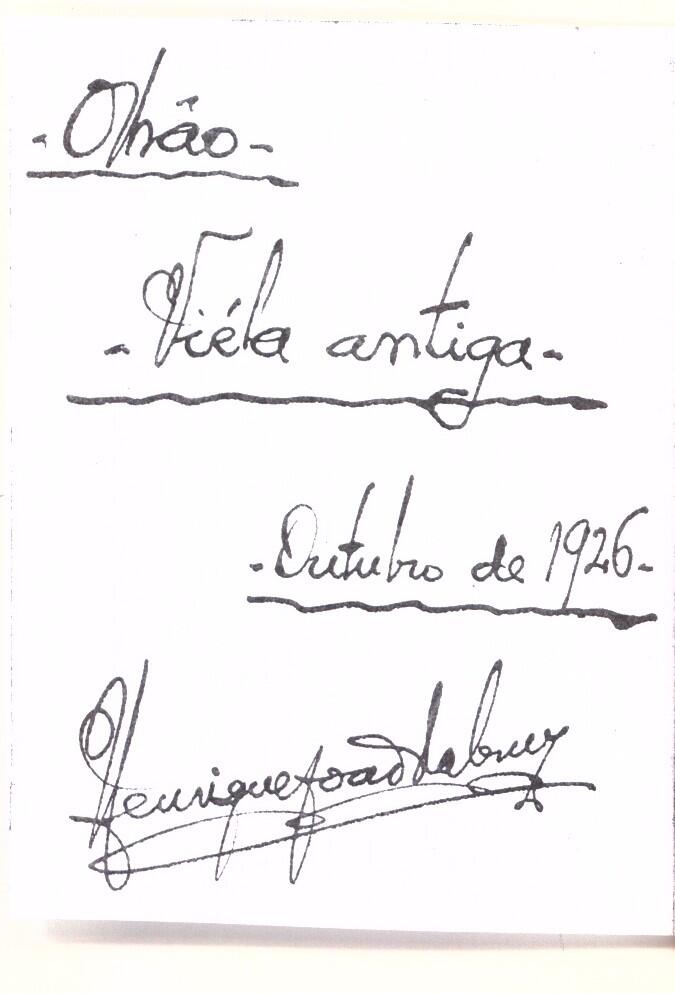 - Olhão -
- Viéla antiga -
- Outubro de 1926 -
Henrique João